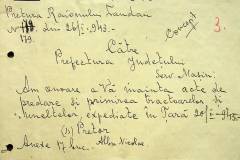 Pretura Raionului Landau
Concept
3.
Nr. din 26/I-943.-
179.
Către
Prefectura Județului
Serv. Mașini.
Am onoare a Vă înainta acte de
predare și primirea tractoarelor și
uneltelor, expediate în Țară 20/I-943.-
(ss) Pretor
Anexe 17 buc. Albu Nicolae